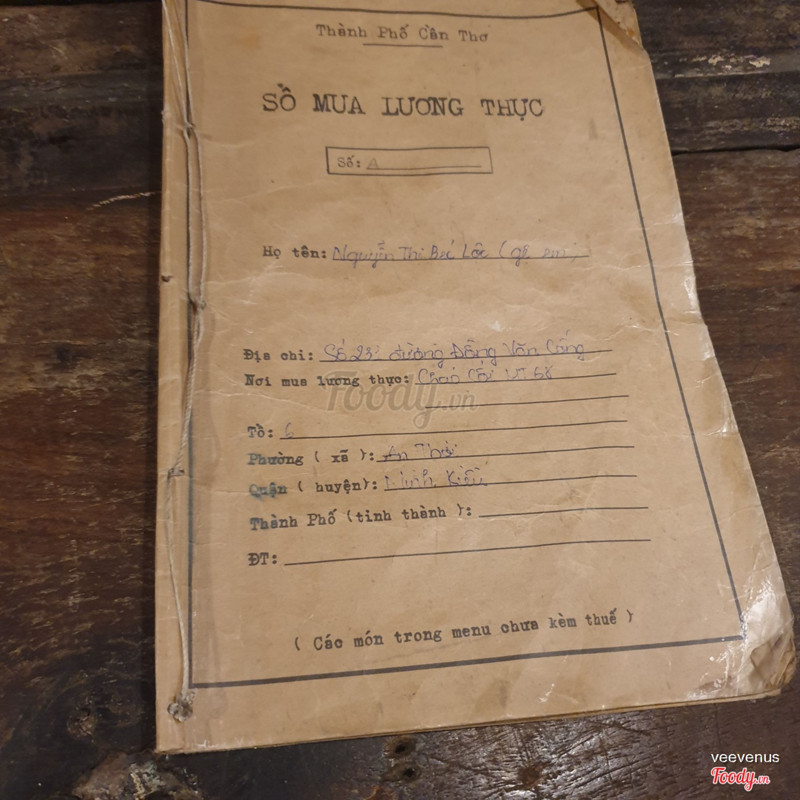 Thành Phố Cần Thơ
SỔ MUA LƯƠNG THỰC
Số: A
Họ tên: Nguyễn Thị Bé Lộc
Địa chỉ: Số đường Đồng Văn Cống
Nơi mua lương thực:
Foody.vn
Tổ: 6
Phường ( xã ): An Thới
Quận ( huyện): Ninh Kiều
Thành Phố (tỉnh thành ):
ĐT:
( Các món trong menu chưa kèm thuế )
veevenus
Foody.vn